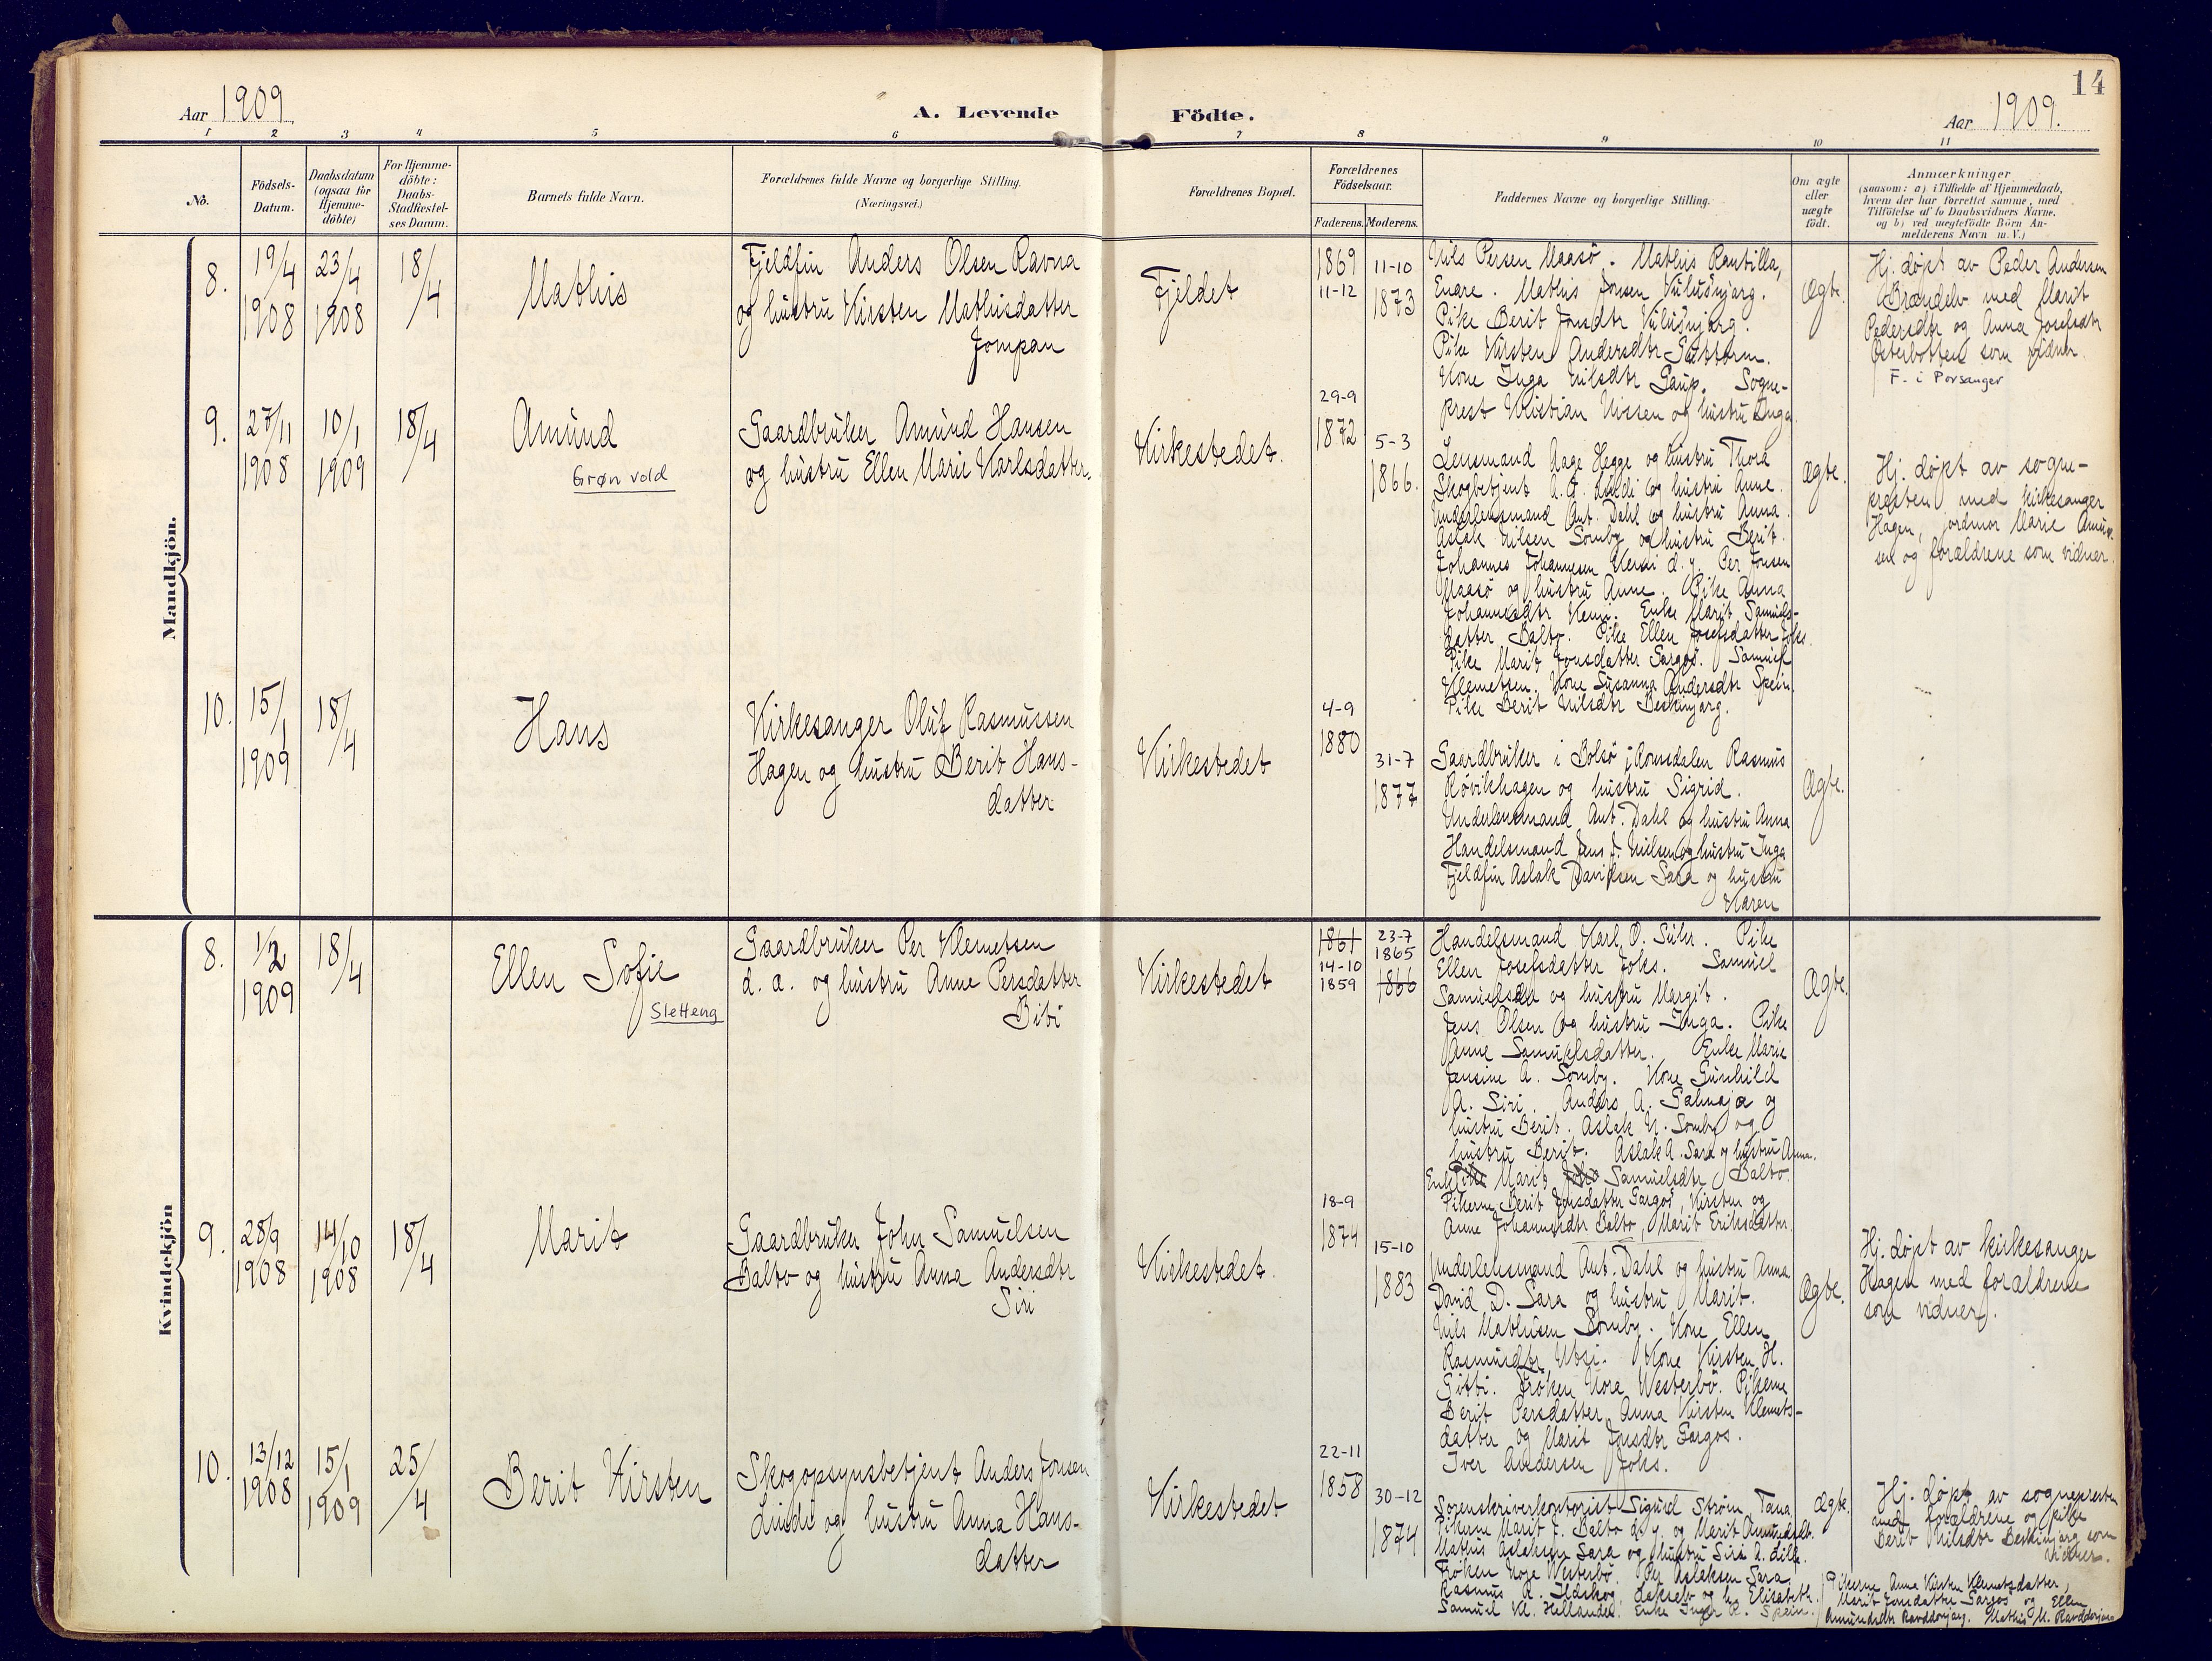 14
Aar 1909.
A. Levende Födte.
Aar 1909.
1 2 3 4 5 6 7 8 9 10 11
No.
Födsels-
Datum.
Daabsdatum
(ogsaa for
Hjemme-
döbte)
For Hjemme-
döbte:
Daabs-
Stadfæstel-
ses Datum.
Barnets fulde Navn.
Forældrenes fulde Navne og borgerlige Stilling.
(Næringsvei.)
Forældrenes Bopæl.
Forældrenes
Födselsaar.
Faderens. Moderens.
Faddernes Navne og borgerlige Stilling.
Om ægte
eller
uægte
født.
Anmærkninger
(saasom: a) i Tilfælde af Hjemmedaab,
hvem der har forrettet samme, med
Tilföielse af to Daabsvidners Navne.
og b) ved uegtefödte Börn An-
melderens Navn m. V.)
Mandkjön.
8.
19/4
1908
23/4
1908
18/4
Mathis
Fjeldfin Anders Olsen Ravna
og hustru Kirsten Mathisdatter
Jompan
Fjeldet
1869
11-12
11-10
1873
Nils Persen Maasö. Mathis Rantilla,
Enare. Mathis Jonsen Vulusnjarg.
Pike Berit Jonsdtr Vulusnjarg.
Pike Kirsten Andersdtr Guttorm.
Kone Inga Nilsdtr Gaup. Sogne-
prest Kristian Nissen og hustru Inga
Ægte.
Hj. døpt av Peder Andersen
Brændelv med Marit
Pedersdtr og Anna Josefsdtr
Østerbotten som vidner.
F. i Porsanger
9.
27/11
1908
10/1
1909
18/4
Amund
Grønvold
Gaardbruker Amund Hansen
og hustru Ellen Marie Karlsdatter.
Kirkestedet.
29-9
1872
5-3
1866.
Lensmand Aage Hegge og hustru Thora
Skogbetjent A. J. Lindi og hustru Anne.
Underlensmand Ant. Dahl og hustru Anna.
Aslak Nilsen Somby og hustru Berit.
Johannes Johannesen Kemi d. y. Per Jonsen
Maasö og hustru Anne. Pike Anna
Johannesdtr Kemi. Enke Marit Samuels-
datter Balto. Pike Ellen Josefsdatter Joks.
Pike Marit Jonsdatter Gargos. Samuel
Klemetsen. Kone Susanna Andersdtr Spein.
Pike Berit Nilsdtr Beskinjarg.
Ægte.
Hj. døpt av sogne-
presten med kirkesanger
Hagen, jordmor Marie Amund-
sen og forældrene som vidner.
10.
15/1
1909
18/4
Hans
Kirkesanger Oluf Rasmussen
Hagen og hustru Berit Hans-
datter
Kirkestedet
4-9
1880
31-7
1877
Gaardbruker i Bolsö i Romsdalen Rasmus
Røvikhagen og hustru Sigrid.
Underlensmand Ant. Dahl og hustru Anna
Handelsmand Jens J. Nielsen og hustru Inga
Fjeldfin Aslak Davidsen Sara og hustru
Karen
Ægte.
Kvindekjön
8.
1/2
1909
18/4
Ellen Sofie
Sletteng
Gaardbruker Per Klemetsen
d. a. og hustru Anne Persdatter
Biti
Kirkestedet
1861
14-10
1859
23-7
1865
1866
Handelsmand Karl O. Suhr. Pike
Ellen Josefsdatter Joks. Samuel
Samuelsen og hustru Margit.
Jens Olsen og hustru Inga. Pike
Anne Samuelsdatter. Enke Marie
Jensine A. Somby. Kone Gunhild
A. Siri. Anders A. Gahnaja og
hustru Berit. Aslak N. Somby og
hustru Berit. Aslak A. Sara og hustru Anna.
Enke Pike Marit Samuelsdtr Balto.
Pikerne Berit Jonsdatter Gargos, Kirsten og
Anne Johannesdtr Balto, Marit Eriksdatter.
Ægte.
9.
28/9
1908
14/10
1908
18/4
Marit
Gaardbruker John Samuelsen
Balto og hustru Anna Andersdtr
Siri
Kirkestedet.
18-9
1874
15-10
1883
Underlensmand Ant. Dahl og hustru Anna
David D. Sara og hustru Marit.
Nils Mathisen Somby. Kone Ellen
Rasmusdtr Utsi. Kone Kirsten H.
Gitti. Frøken Nora Westerbö. Pikerne
Berit Persdatter, Anna Kirsten Klemets-
datter og Marit Jonsdtr Gargos.
Iver Andersen Joks.
Ægte.
Hj. døpt av kirkesanger
Hagen med forældrene
som vidner.
10.
13/12
1908
15/1
1909
25/4
Berit Kirsten
Skogopsynsbetjent Anders Jonsen
Lindi og hustru Anna Hans-
datter
Kirkestedet
22-11
1858
30-12
1874
Sorenskriverkontorist Sigurd Strøm, Tana
Pikerne Marit J. Balto d. y. og Merit Amundsdtr.
Mathis Aslaksen Sara og hustru Siri A. lille.
Frøken Nora Westerbö. Per Aslaksen Sara
Rasmus R. Ildskog, Lakselv og h. Elisabeth.
Samuel Kl. Hellander. Enke Inger R. Spein.
Pikerne Anna Kirsten Klemetsdatter,
Marit Jonsdatter Gargos og Ellen
Amundsdtr Ravddonjarg. Mathis M. Ravddonjarg
Ægte.
Hj. døpt av sognepresten
med forældrene og pike
Berit Nilsdtr Beskinjarg som
vidner.